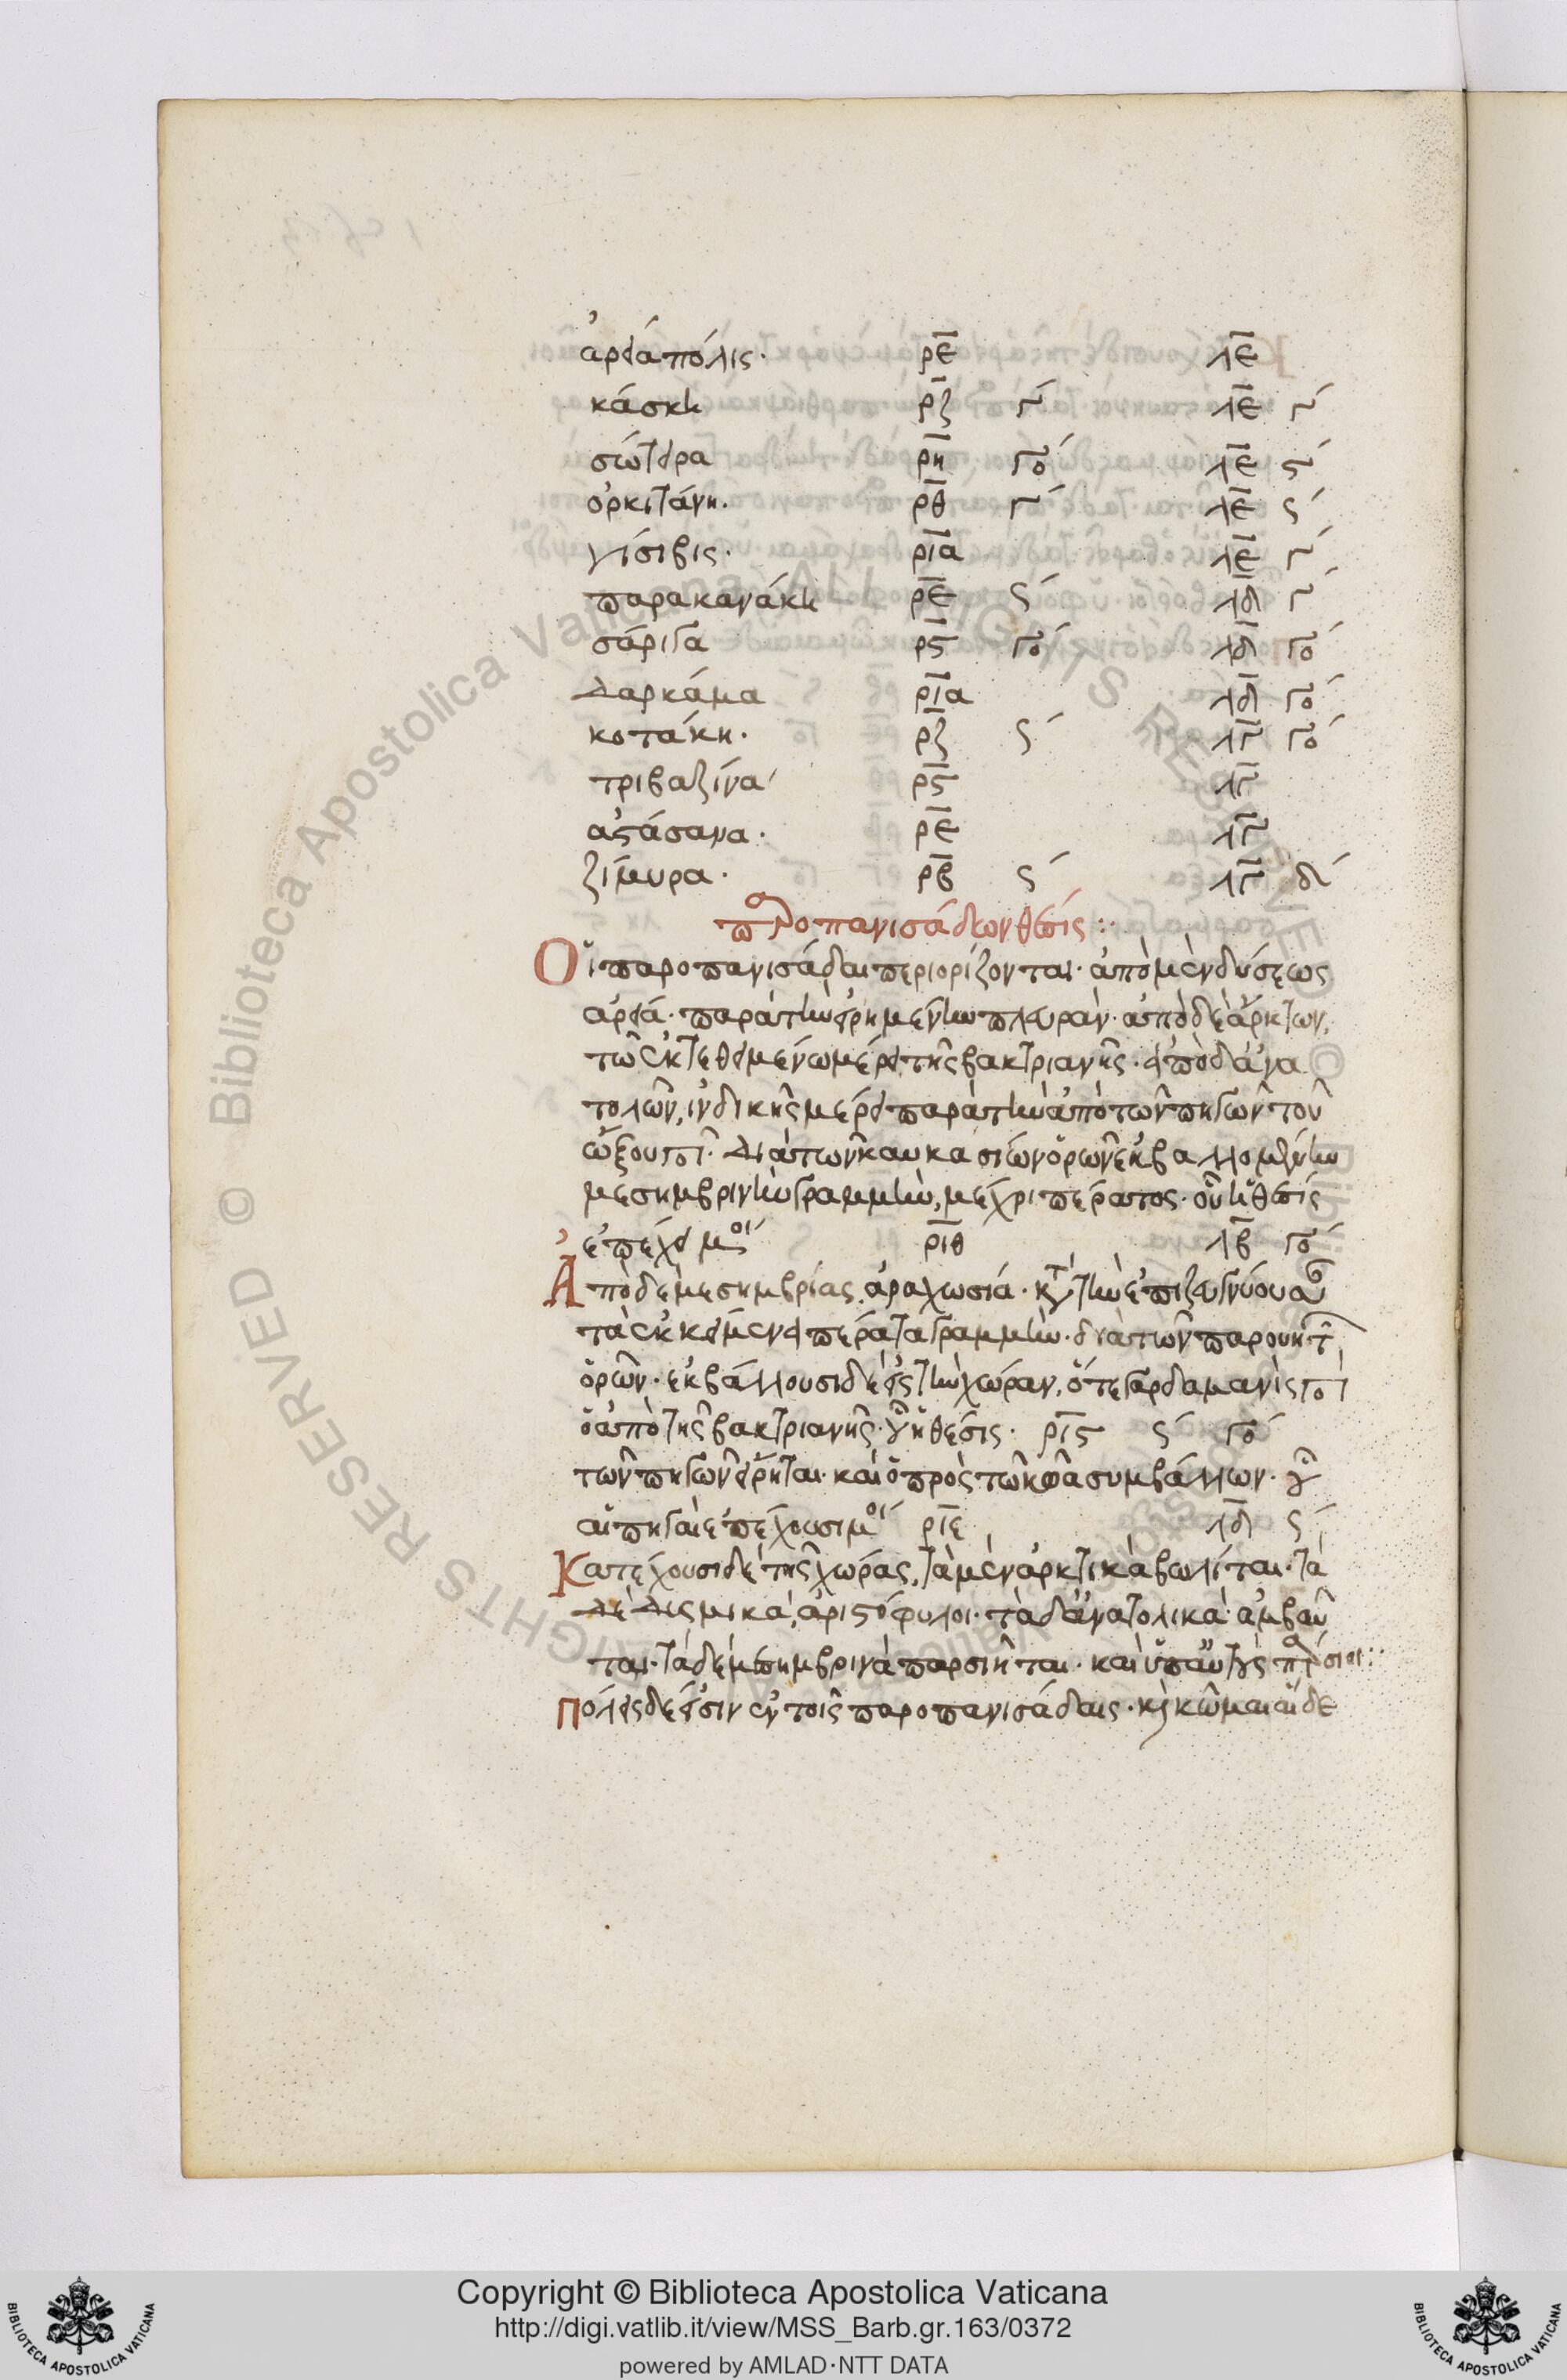 ἀρεία πόλις· ρε λε
κάσκη ρζ γ´ λε γ´
σώτειρα ρη γο´ λε ϛ´
ὀρκιτάνη· ρθ γ´ λε ϛ´
νίσιβις· ρια λε γ´
παρακανάκη ρε ϛ´ λδ γ´
σάριγα ρϛ γο´ λδ γο´
δαρκάμα ρια λδ γο´
κοτάκη· ρζ ϛ´ λγ γο´
τριβαζίνα ρϛ λγ
αστάσανα· ρε λγ
ζίμυρα· ρβ ϛ´ λγ δ´
παροπανισάδων θέσις:·
Οἱ παροπανισάδαι περιορίζονται· ἀπὸ μὲν δύσεως
ἀρεία· παρὰ τὴν εἰρημένην πλευρὰν· ἀπὸ δὲ ἄρκτων,
τῶ ἐκτεθειμένω μέρει τῆς βακτριανῆς· ἀπὸ δ' ἀνα
τολῶν, ἰνδικῆς μέρει παρὰ τὴν ἀπὸ τῶν πηγῶν τοῦ
ὤξου ποτ· διὰ τῶν καυκασίων ὀρῶν ἐκβαλλομένην
μεσημβρινὴν γραμμὴν, μέχρι πέρατος· οὗ ἡ θέσις
ἐπέχει μοι´ ριθ λβ γο´
Ἀπὸ δὲ μεσημβρίας ἀραχωσία· κατὰ τὴν ἐπιζευγνύουσαν
τὰ ἐκκείμενα πέρατα γραμμὴν· διὰ τῶν παρουητ
ὀρῶν· ἐκβάλλουσι δὲ εἰς τὴν χώραν, ὅ τε γαρδαμανὶς ποτ
ὁ ἀπὸ τῆς βακτριανῆς· οὗ ἡ θέσις· ριϛ ϛ´ γο´
τῶν πηγῶν εἴρηται· καὶ ὁ πρὸς τῶ κῶα συμβάλλων· οὗ
αἱ πηγαὶ ἐπέχουσι μοι´ ριε λδ ϛ´
Κατέχουσι δὲ τῆς χώρας, τὰ μὲν ἀρκτικὰ βωλίται· τὰ
δὲ δισμικὰ, ἀριστόφυλοι· τὰ δ' ἀνατολικὰ ἀμβαῦ
ται· τὰ δὲ μεσημβρινὰ παρσιῆται· καὶ ὑπ' αὐτοὺς παρσιοι:·
Πόλεις δέ εἰσιν ἐν τοῖς παροπανισάδαις· κὶ κῶμαι αἵδε
Copyright © Biblioteca Apostolica Vaticana
http://digi.vatlib.it/view/MSS_Barb.gr.163/0372
powered by AMLAD·NTT DATA